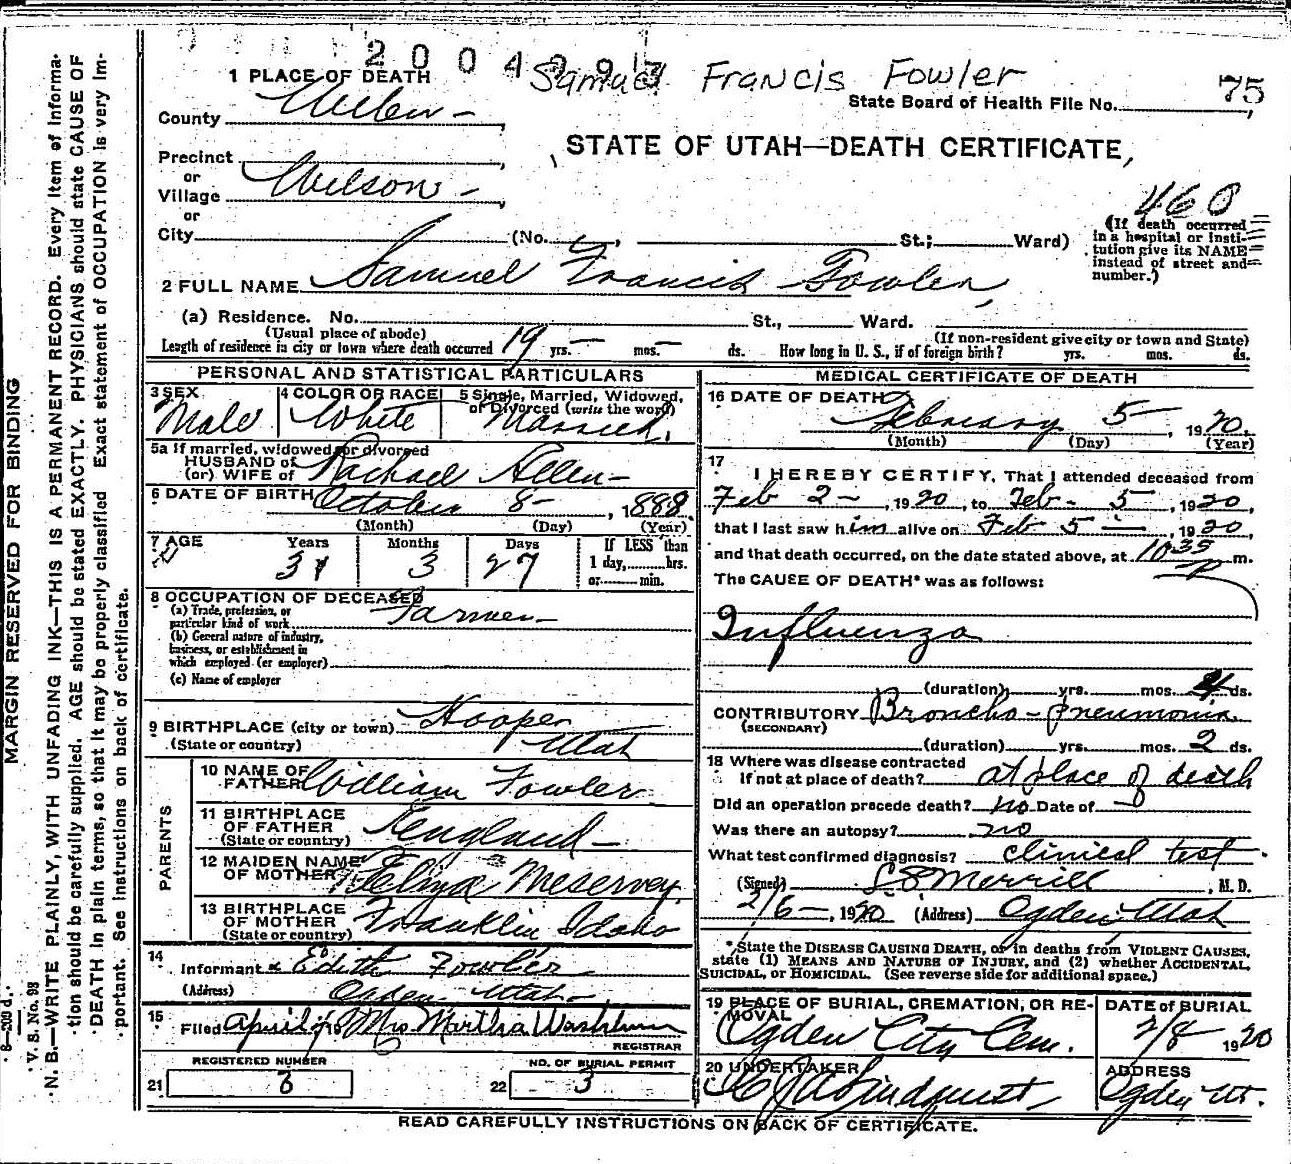 2004293
Samuel Francis Fowler
1 PLACE OF DEATH
75
State Board of Health File No.
County
STATE OF UTAH—DEATH CERTIFICATE,
Precinct
or
Wilson —
Village
or
460
City (No. , St.; Ward)
(If death occurred in a hospital or institution give its NAME instead of street and number.)
2 FULL NAME Samuel Francis Fowler,
(a) Residence. No. St., Ward.
(Usual place of abode) (If non-resident give city or town and State)
Length of residence in city or town where death occurred 19 yrs. — mos. — ds. How long in U. S., if of foreign birth? yrs. mos. ds.
PERSONAL AND STATISTICAL PARTICULARS
3 SEX Male
4 COLOR OR RACE White
5 Single, Married, Widowed, or Divorced (write the word) Married.
5a If married, widowed or divorced
HUSBAND of
(or) WIFE of Rachael Allen —
6 DATE OF BIRTH October 8 — , 1888.
(Month) (Day) (Year)
7 AGE Years Months Days If LESS than
31 3 27 1 day, hrs.
or min.
8 OCCUPATION OF DECEASED
(a) Trade, profession, or
particular kind of work Farmer
(b) General nature of industry,
business, or establishment in
which employed (or employer)
(c) Name of employer
9 BIRTHPLACE (city or town) Hooper
(State or country) Utah
PARENTS
10 NAME OF FATHER William Fowler
11 BIRTHPLACE OF FATHER England —
(State or country)
12 MAIDEN NAME OF MOTHER Meservey.
13 BIRTHPLACE OF MOTHER Franklin Idaho
(State or country)
14
Informant Edith Fowler
(Address) Ogden Utah —
15
Filed April Mrs Martha Washburn
REGISTRAR
REGISTERED NUMBER NO. OF BURIAL PERMIT
21 3 22 3
MEDICAL CERTIFICATE OF DEATH
16 DATE OF DEATH
February 5 — , 1920.
(Month) (Day) (Year)
17
I HEREBY CERTIFY, That I attended deceased from
Feb 2 — , 1920, to Feb - 5 — , 1920,
that I last saw him alive on Feb 5 — , 1920,
and that death occurred, on the date stated above, at 10 35 P m.
The CAUSE OF DEATH* was as follows:
Influenza
(duration) yrs. mos. 4 ds.
CONTRIBUTORY Broncho-pneumonia
(SECONDARY)
(duration) yrs. mos. 2 ds.
18 Where was disease contracted
if not at place of death? at place of death
Did an operation precede death? no Date of
Was there an autopsy? no
What test confirmed diagnosis? clinical test.
(Signed) L S Merrill , M. D.
2/6 — , 1920 (Address) Ogden Utah
*State the DISEASE CAUSING DEATH, or in deaths from VIOLENT CAUSES,
state (1) MEANS AND NATURE OF INJURY, and (2) whether ACCIDENTAL,
SUICIDAL, or HOMICIDAL. (See reverse side for additional space.)
19 PLACE OF BURIAL, CREMATION, OR REMOVAL
Ogden City Cem.
DATE of BURIAL
2/8 1920
20 UNDERTAKER
Lindquist
ADDRESS
Ogden Ut.
READ CAREFULLY INSTRUCTIONS ON BACK OF CERTIFICATE.
MARGIN RESERVED FOR BINDING
V. S. No. 98
N. B.—WRITE PLAINLY, WITH UNFADING INK—THIS IS A PERMANENT RECORD. Every item of informa-
tion should be carefully supplied. AGE should be stated EXACTLY. PHYSICIANS should state CAUSE OF
DEATH in plain terms, so that it may be properly classified. Exact statement of OCCUPATION is very im-
portant. See instructions on back of certificate.